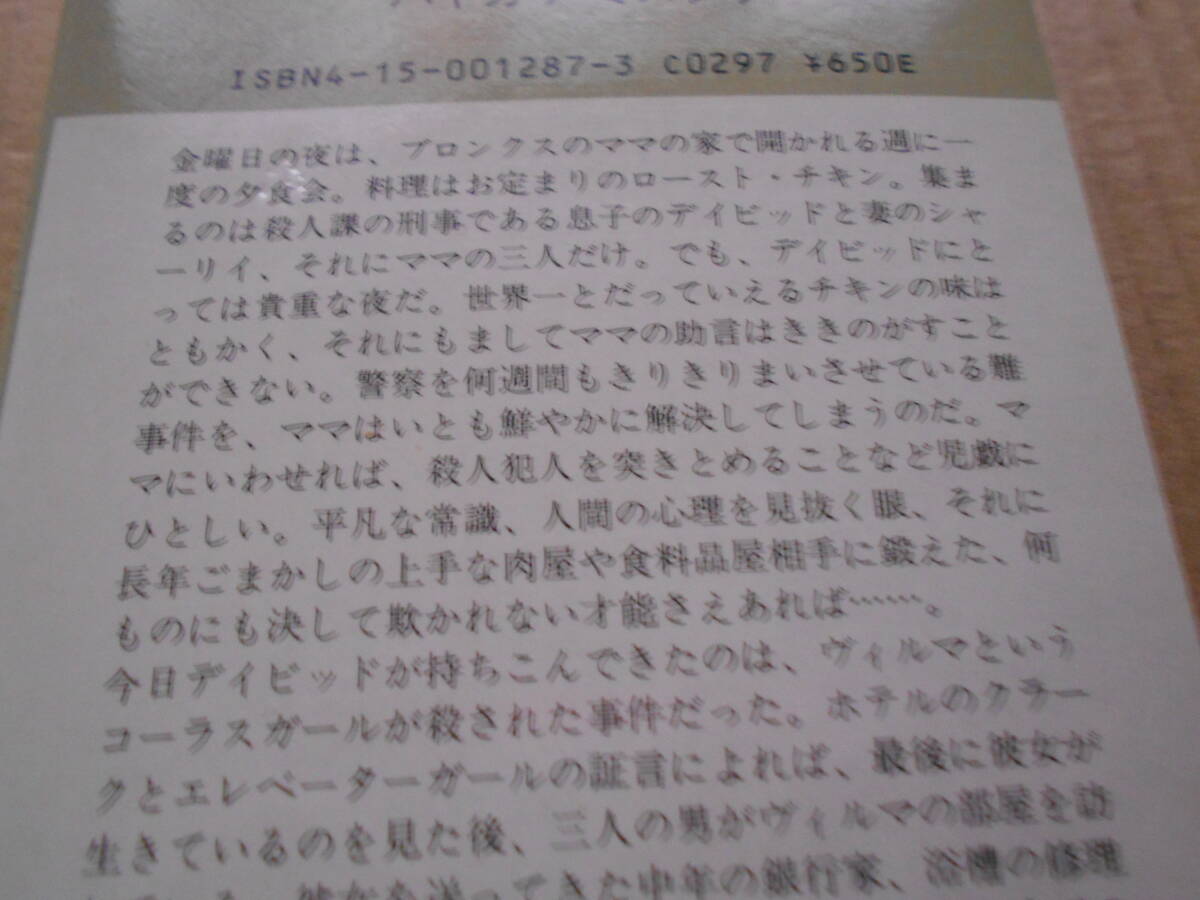 ISBN4-15-001287-3 C0297 ¥650E
金曜日の夜は、ブロンクスのママの家で開かれる週に一
度の夕食会。料理はお定まりのロースト・チキン。集ま
るのは殺人課の刑事である息子のデイビッドと妻のシャ
ーリイ、それにママの三人だけ。でも、デイビッドにと
っては貴重な夜だ。世界一とだっていえるチキンの味は
ともかく、それにもましてママの助言はききのがすこと
ができない。警察を何週間もきりきりまいさせている難
事件を、ママはいとも鮮やかに解決してしまうのだ。マ
マにいわせれば、殺人犯人を突きとめることなど児戯に
ひとしい。平凡な常識、人間の心理を見抜く眼、それに
長年ごまかしの上手な肉屋や食料品屋相手に鍛えた、何
ものにも決して欺かれない才能さえあれば……。
今日デイビッドが持ちこんできたのは、ヴィルマという
コーラスガールが殺された事件だった。ホテルのクラー
クとエレベーターガールの証言によれば、最後に彼女が
生きているのを見た後、三人の男がヴィルマの部屋を訪
彼女を送ってきた中年の銀行家、浴槽の修理